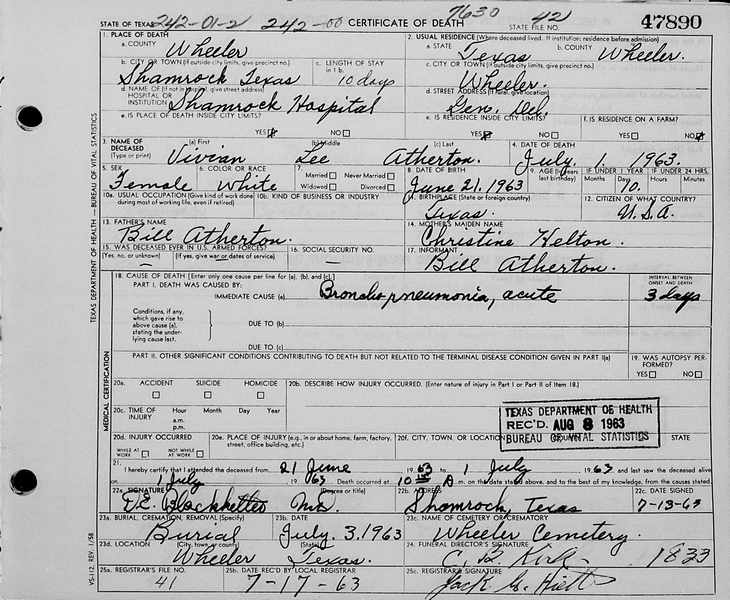 STATE OF TEXAS 242-01-2 242-00 CERTIFICATE OF DEATH 7630 STATE FILE NO. 42 47890
1. PLACE OF DEATH
a. COUNTY Wheeler
2. USUAL RESIDENCE (Where deceased lived. If institution: residence before admission)
a. STATE Texas b. COUNTY Wheeler.
b. CITY OR TOWN (If outside city limits, give precinct no.) Shamrock Texas
c. LENGTH OF STAY in 1 b. 10 days
c. CITY OR TOWN (If outside city limits, give precinct no.) Wheeler.
d. NAME OF (If not in hospital, give street address) HOSPITAL OR INSTITUTION Shamrock Hospital
d. STREET ADDRESS (If rural, give location) Gen. Del.
e. IS PLACE OF DEATH INSIDE CITY LIMITS? YES NO
e. IS RESIDENCE INSIDE CITY LIMITS? YES NO
f. IS RESIDENCE ON A FARM? YES NO
3. NAME OF DECEASED (Type or print) (a) First Vivian (b) Middle Lee (c) Last Atherton.
4. DATE OF DEATH July. 1. 1963.
5. SEX Female
6. COLOR OR RACE White
7. Married Never Married Widowed Divorced
8. DATE OF BIRTH June 21. 1963
9. AGE (In years last birthday) IF UNDER 1 YEAR Months Days 10. IF UNDER 24 HRS. Hours Minutes
10a. USUAL OCCUPATION (Give kind of work done during most of working life, even if retired)
10b. KIND OF BUSINESS OR INDUSTRY
11. BIRTHPLACE (State or foreign country) Texas.
12. CITIZEN OF WHAT COUNTRY? U.S.A.
13. FATHER'S NAME Bill Atherton.
14. MOTHER'S MAIDEN NAME Christine Helton.
15. WAS DECEASED EVER IN U.S. ARMED FORCES? (Yes, no, or unknown) (If yes, give war or dates of service) —
16. SOCIAL SECURITY NO. —
17. INFORMANT Bill Atherton.
18. CAUSE OF DEATH [Enter only one cause per line for (a), (b), and (c).]
INTERVAL BETWEEN ONSET AND DEATH
PART I. DEATH WAS CAUSED BY:
IMMEDIATE CAUSE (a) Broncho pneumonia, acute 3 days
Conditions, if any, which gave rise to above cause (a), stating the underlying cause last.
DUE TO (b)
DUE TO (c)
PART II. OTHER SIGNIFICANT CONDITIONS CONTRIBUTING TO DEATH BUT NOT RELATED TO THE TERMINAL DISEASE CONDITION GIVEN IN PART I(a)
19. WAS AUTOPSY PERFORMED? YES NO
20a. ACCIDENT SUICIDE HOMICIDE
20b. DESCRIBE HOW INJURY OCCURRED. (Enter nature of injury in Part I or Part II of Item 18.)
20c. TIME OF INJURY Hour Month Day Year a.m. p.m.
20d. INJURY OCCURRED WHILE AT WORK NOT WHILE AT WORK
20e. PLACE OF INJURY (e.g., in or about home, farm, factory, street, office building, etc.)
20f. CITY, TOWN, OR LOCATION COUNTY STATE
TEXAS DEPARTMENT OF HEALTH
REC'D. AUG 8 1963
BUREAU OF VITAL STATISTICS
21. I hereby certify that I attended the deceased from 21 June 1963 to 1 July 1963 and last saw the deceased alive
on 1 July 1963 Death occurred at 10 A m. on the date stated above, and to the best of my knowledge, from the causes stated.
22a. SIGNATURE (Degree or title) MD.
22b. ADDRESS Shamrock, Texas
22c. DATE SIGNED 7-13-63
23a. BURIAL, CREMATION, REMOVAL (Specify) Burial
23b. DATE July. 3. 1963
23c. NAME OF CEMETERY OR CREMATORY Wheeler Cemetery.
23d. LOCATION (City, town, or county) Wheeler (State) Texas.
24. FUNERAL DIRECTOR'S SIGNATURE Kirk 1833
25a. REGISTRAR'S FILE NO. 41
25b. DATE REC'D BY LOCAL REGISTRAR 7-17-63
25c. REGISTRAR'S SIGNATURE Jack G. Hiett
TEXAS DEPARTMENT OF HEALTH — BUREAU OF VITAL STATISTICS
MEDICAL CERTIFICATION
VS-112 REV. 1/58